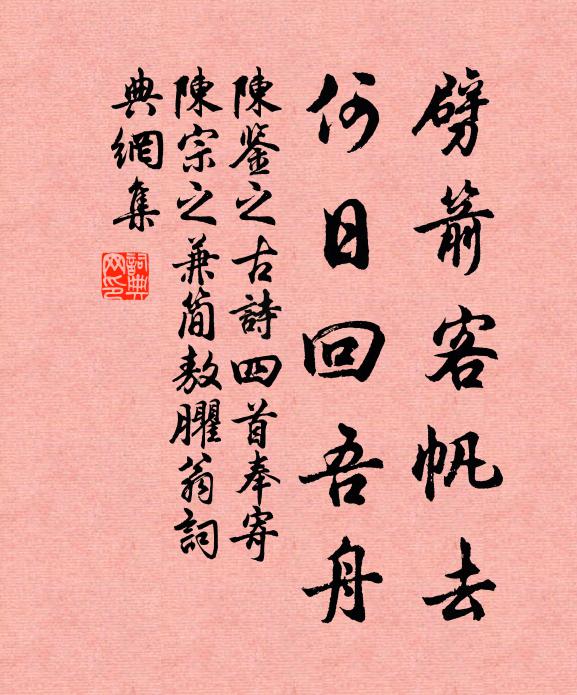 劈箭客帆去
何日回吾舟
陳鉴之古詩四首奉寄
陳宗之兼簡敖臞翁詞
典網集
詞典網印